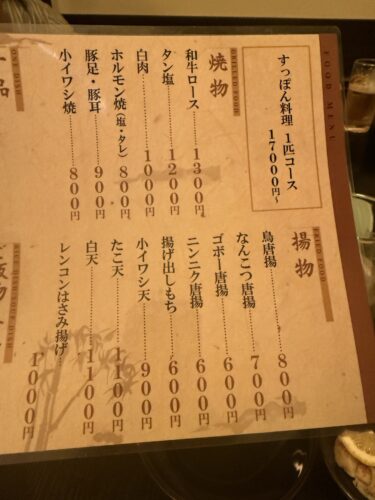 FOOD MENU
すっぽん料理 1匹コース
17000円~
焼物
GRILLED FOOD
和牛ロース 1300円
タン塩 1200円
白肉 1000円
ホルモン焼(塩・タレ) 800円
豚足・豚耳 900円
小イワシ焼 800円
一品
ONE DISH
揚物
FRIED FOOD
鳥唐揚 800円
なんこつ唐揚 700円
ゴボー唐揚 600円
ニンニク唐揚 600円
揚げ出しもち 600円
小イワシ天 900円
たこ天 1100円
白天 1100円
レンコンはさみ揚げ 1000円
ご飯物